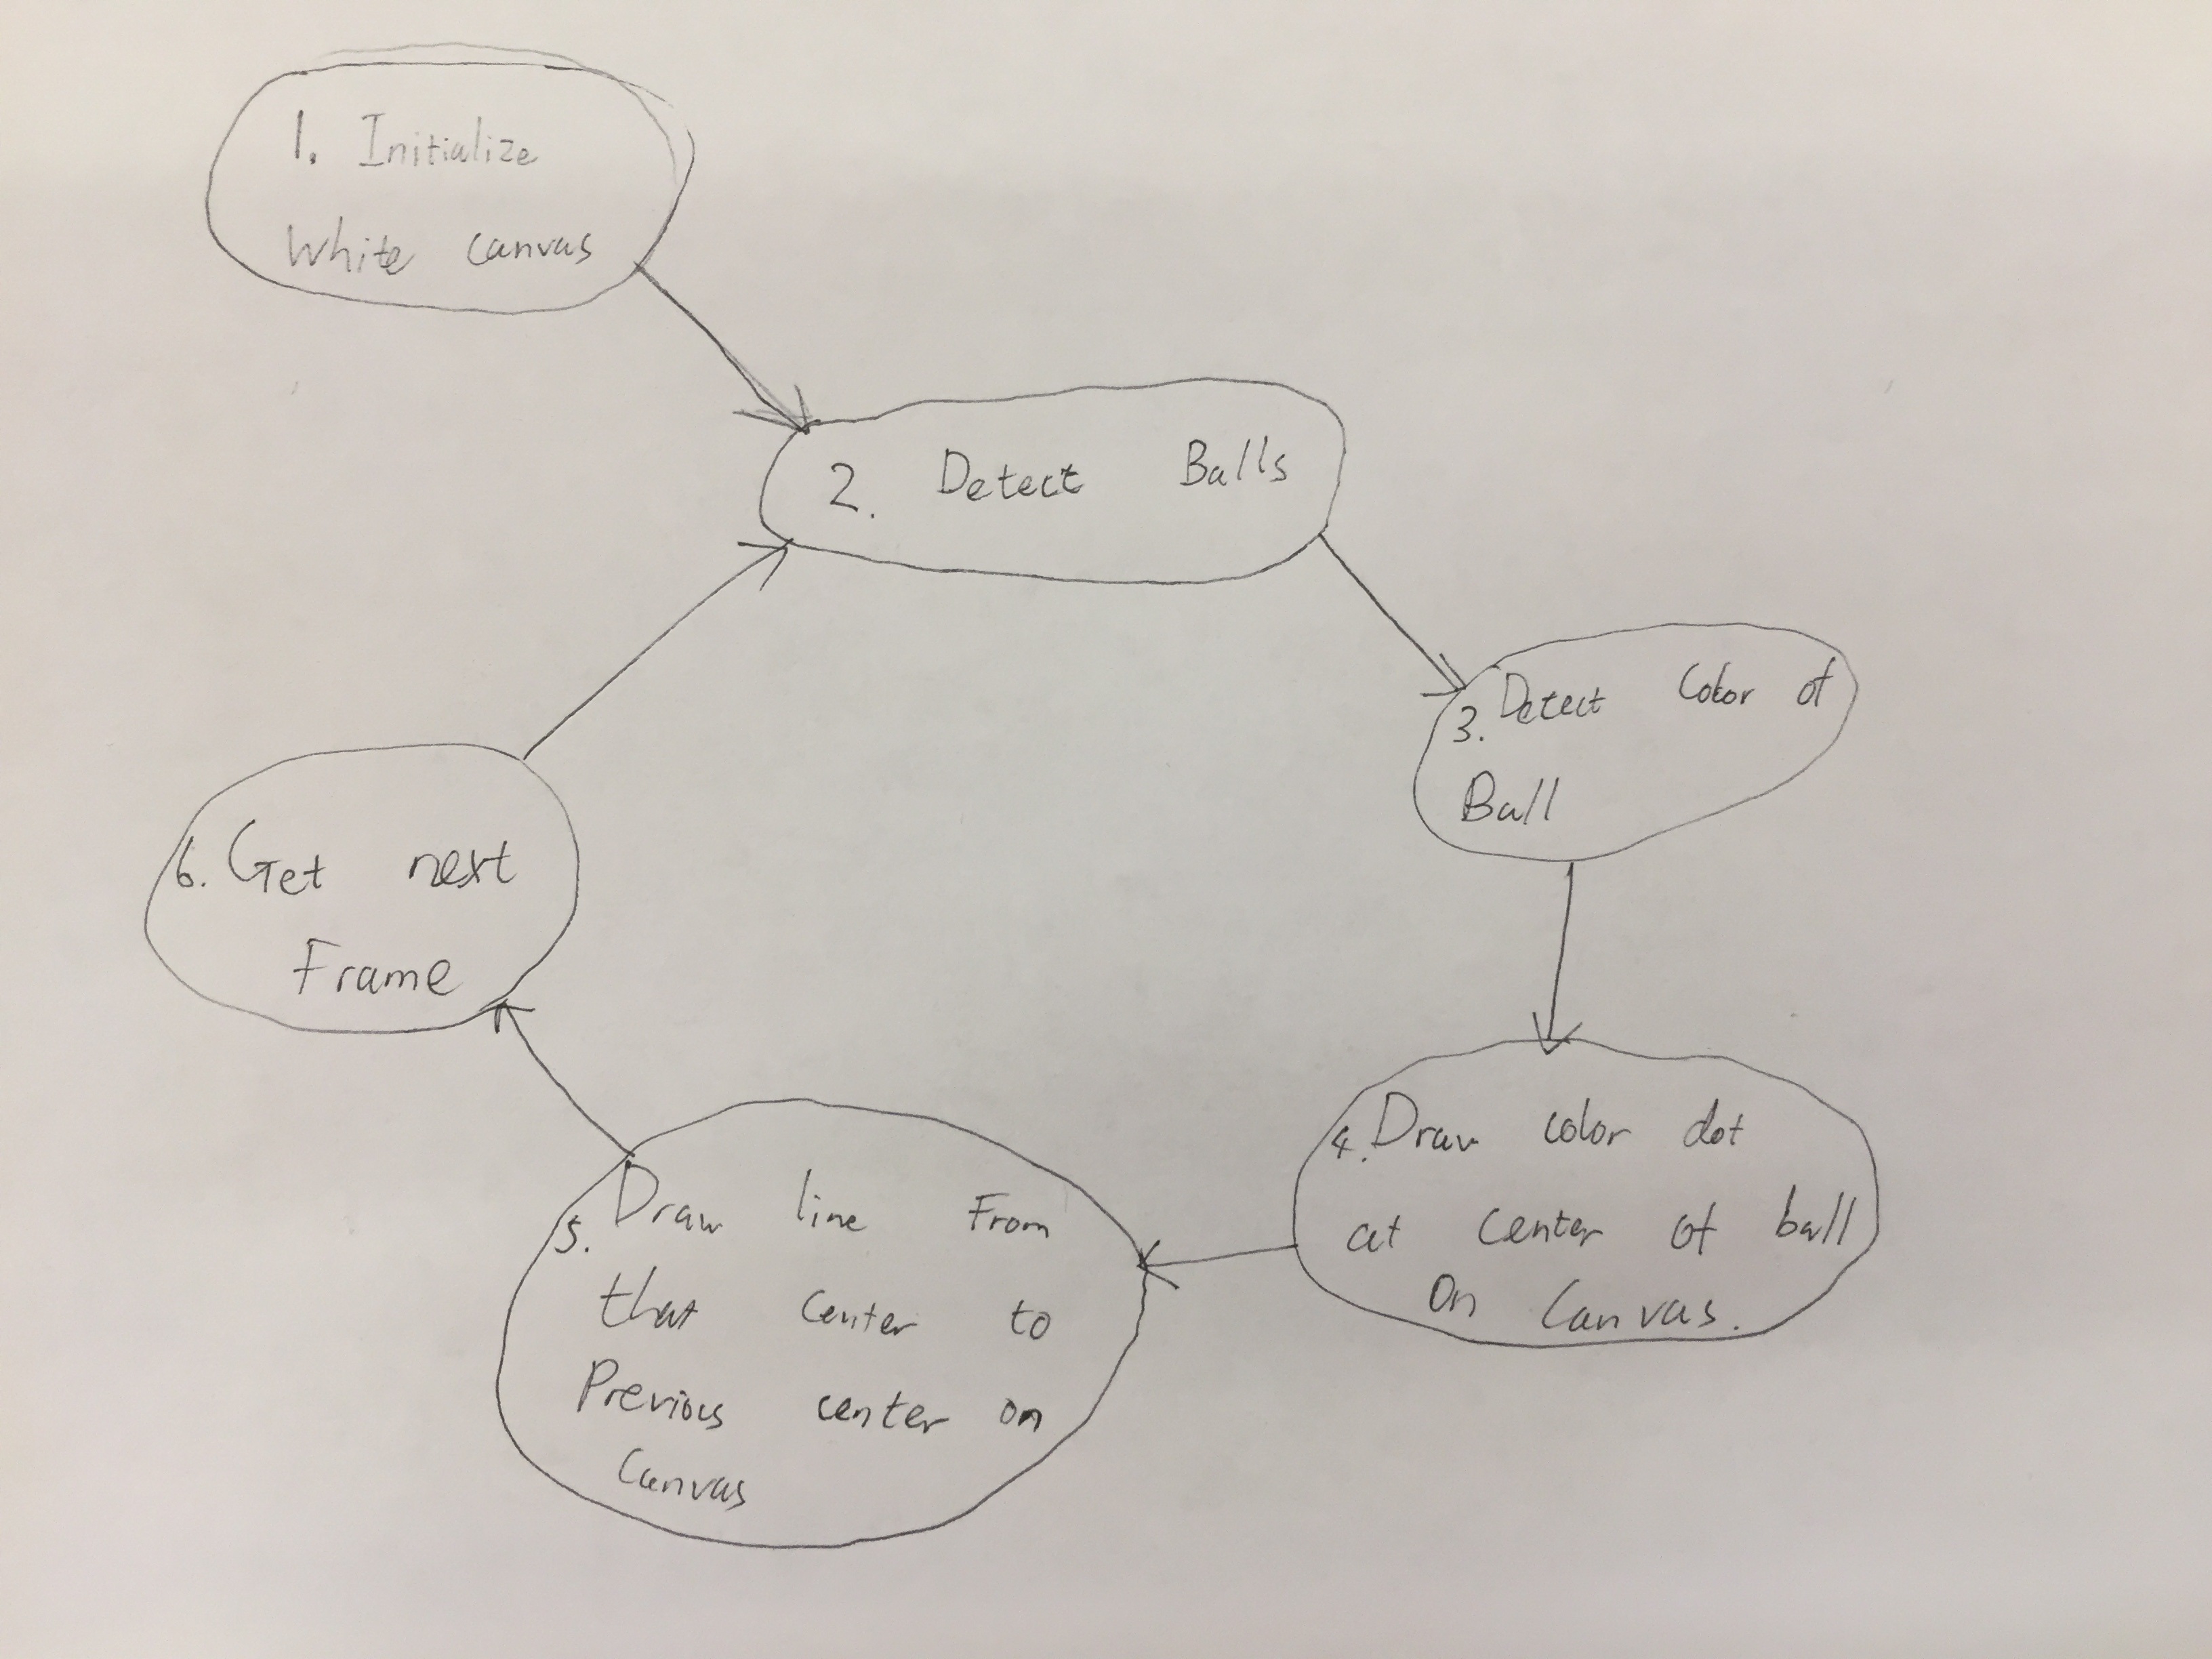 1. Initialize
White canvas
2. Detect Balls
3. Detect Color of
Ball
4. Draw color dot
at center of ball
On Canvas.
5. Draw line From
that Center to
Previous center on
Canvas
6. Get next
Frame